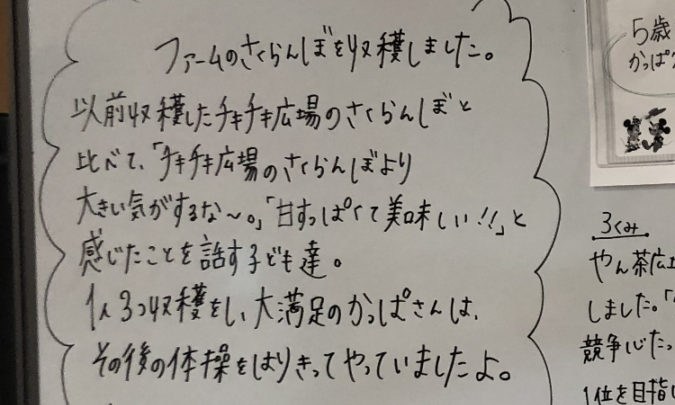 ファームのさくらんぼを収穫しました。
以前収穫したチキチキ広場のさくらんぼと
比べて、「チキチキ広場のさくらんぼより
大きい気がするな〜。」「甘すっぱくて美味しい!!」と
感じたことを話す子ども達。
1人3つ収穫をし、大満足のかっぱさんは、
その後の体操をはりきってやっていましたよ。
5歳
かっぱ
3くみ
やん茶広
しました。「
競争心たっ
1位を目指し